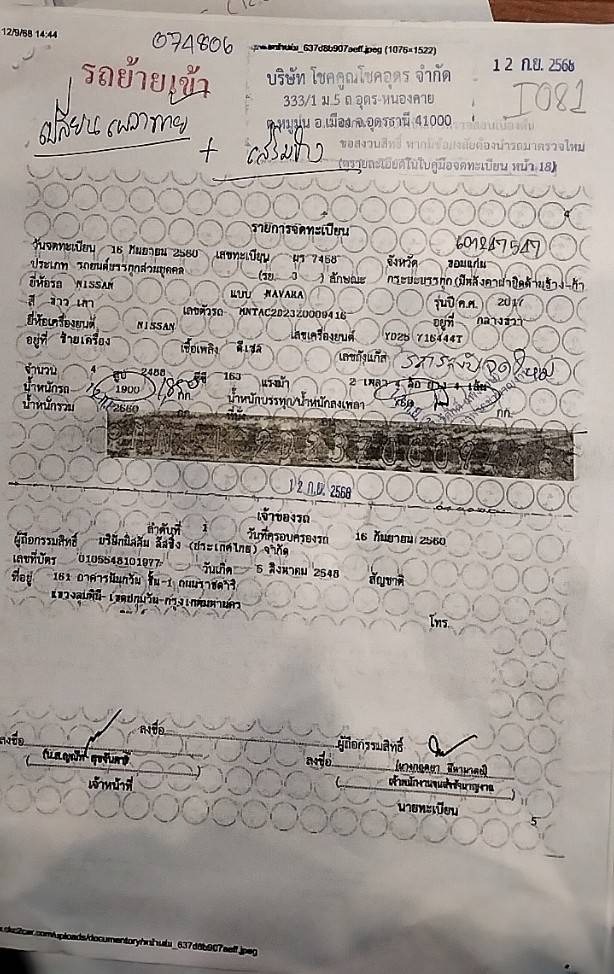 12/9/68 14:44
_637d8b907aeff.jpeg (1076×1522)
074806
12 ก.ย. 2568
รถย้ายเข้า
บริษัท โชคคูณโชคอุดร จำกัด
333/1 ม.5 ถ.อุดร-หนองคาย
ต.หมูม่น อ.เมือง จ.อุดรธานี 41000
I081
เปลี่ยนเพลาท้าย
+ เสริมข้าง
ขอสงวนสิทธิ์ หากมีข้อสงสัยต้องนำรถมาตรวจใหม่
(ดูรายละเอียดในใบคู่มือจดทะเบียน หน้า 18)
4
รายการจดทะเบียน
601247547
วันจดทะเบียน 16 กันยายน 2560 เลขทะเบียน ผร 7458 จังหวัด ขอนแก่น
ประเภท รถยนต์บรรทุกส่วนบุคคล (รย. 3 ) ลักษณะ กระบะบรรทุก
ยี่ห้อรถ NISSAN แบบ NAVARA รุ่นปี ค.ศ. 2017
สี ขาว เทา เลขตัวรถ MNTAC2D23Z0009416 อยู่ที่ กลางขวา
ยี่ห้อเครื่องยนต์ NISSAN เลขเครื่องยนต์ YD25 716444T
อยู่ที่ ซ้ายเครื่อง เชื้อเพลิง ดีเซล เลขถังแก๊ส
จำนวน 4 สูบ 2488 ซีซี 163 แรงม้า 2 เพลา 4 ล้อ ยาง 4 เส้น
น้ำหนักรถ 1900 กก. น้ำหนักบรรทุก/น้ำหนักลงเพลา กก.
น้ำหนักรวม 2660 กก.
12 ก.ย. 2568
เจ้าของรถ
ลำดับที่ 1 วันที่ครอบครองรถ 16 กันยายน 2560
ผู้ถือกรรมสิทธิ์ ลีสซิ่ง (ประเทศไทย) จำกัด
เลขที่บัตร 0105548101977 วันเกิด 5 สิงหาคม 2548 สัญชาติ
ที่อยู่ 161 อาคาร ชั้น-1 ถนนราชดำริ
แขวงลุมพินี-เขตปทุมวัน-กรุงเทพมหานคร
โทร.
ลงชื่อ ผู้ถือกรรมสิทธิ์
ลงชื่อ
ลงชื่อ
เจ้าหน้าที่
เจ้าพนักงานขนส่งชำนาญงาน
นายทะเบียน
5
637d8b907aeff.jpeg